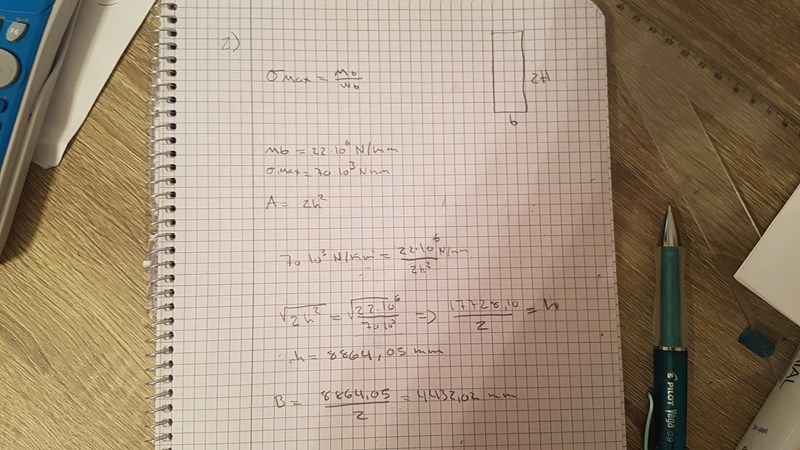 2)
σmax = Mb/Wb
2h
b
Mb = 22·10⁶ N/mm
σmax = 70·10³ N/mm
A = 2h²
70·10³ N/mm = 22·10⁶ N/mm / 2h²
√2h² = √22·10⁶ / 70·10³ => 17728,10 / 2 = h
h = 8864,05 mm
B = 8864,05 / 2 = 4432,02 mm
PILOT Vega 09